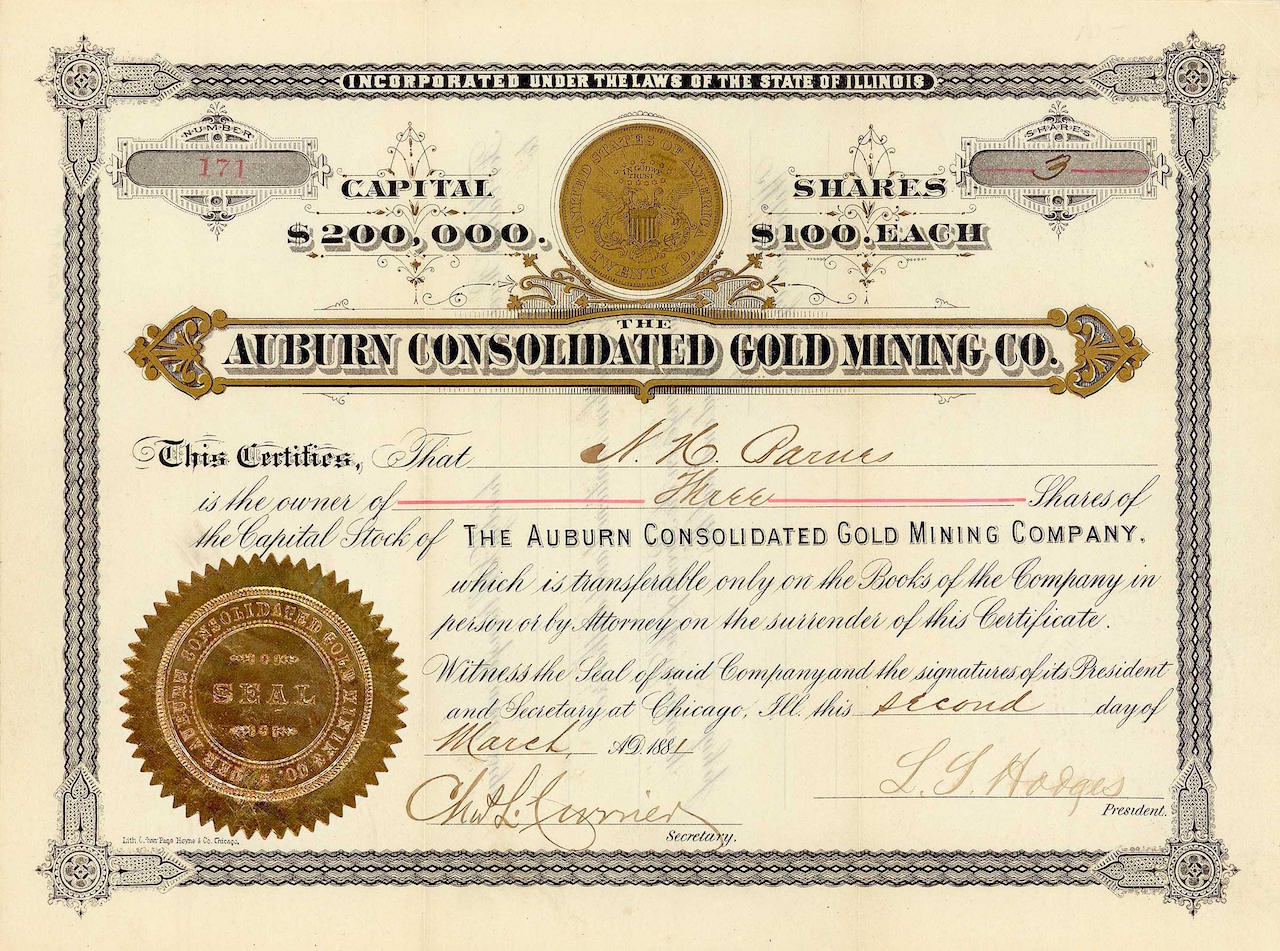 INCORPORATED UNDER THE LAWS OF THE STATE OF ILLINOIS
NUMBER
171
SHARES
3
CAPITAL
$200,000.
UNITED STATES OF AMERICA
IN GOD WE TRUST
TWENTY D.
SHARES
$100.EACH
THE
AUBURN CONSOLIDATED GOLD MINING CO.
This Certifies, That N. H.
is the owner of Three Shares of
the Capital Stock of THE AUBURN CONSOLIDATED GOLD MINING COMPANY,
which is transferable only on the Books of the Company in
person or by Attorney on the surrender of this Certificate.
Witness the Seal of said Company and the signatures of its President
and Secretary at Chicago, Ill. this second day of
March, A.D. 1881
THE AUBURN CONSOLIDATED GOLD MINING CO.
SEAL
L. S. Hodges
President.
Chas L. Currier
Secretary.
Lith. Culver Page Hoyne & Co. Chicago.